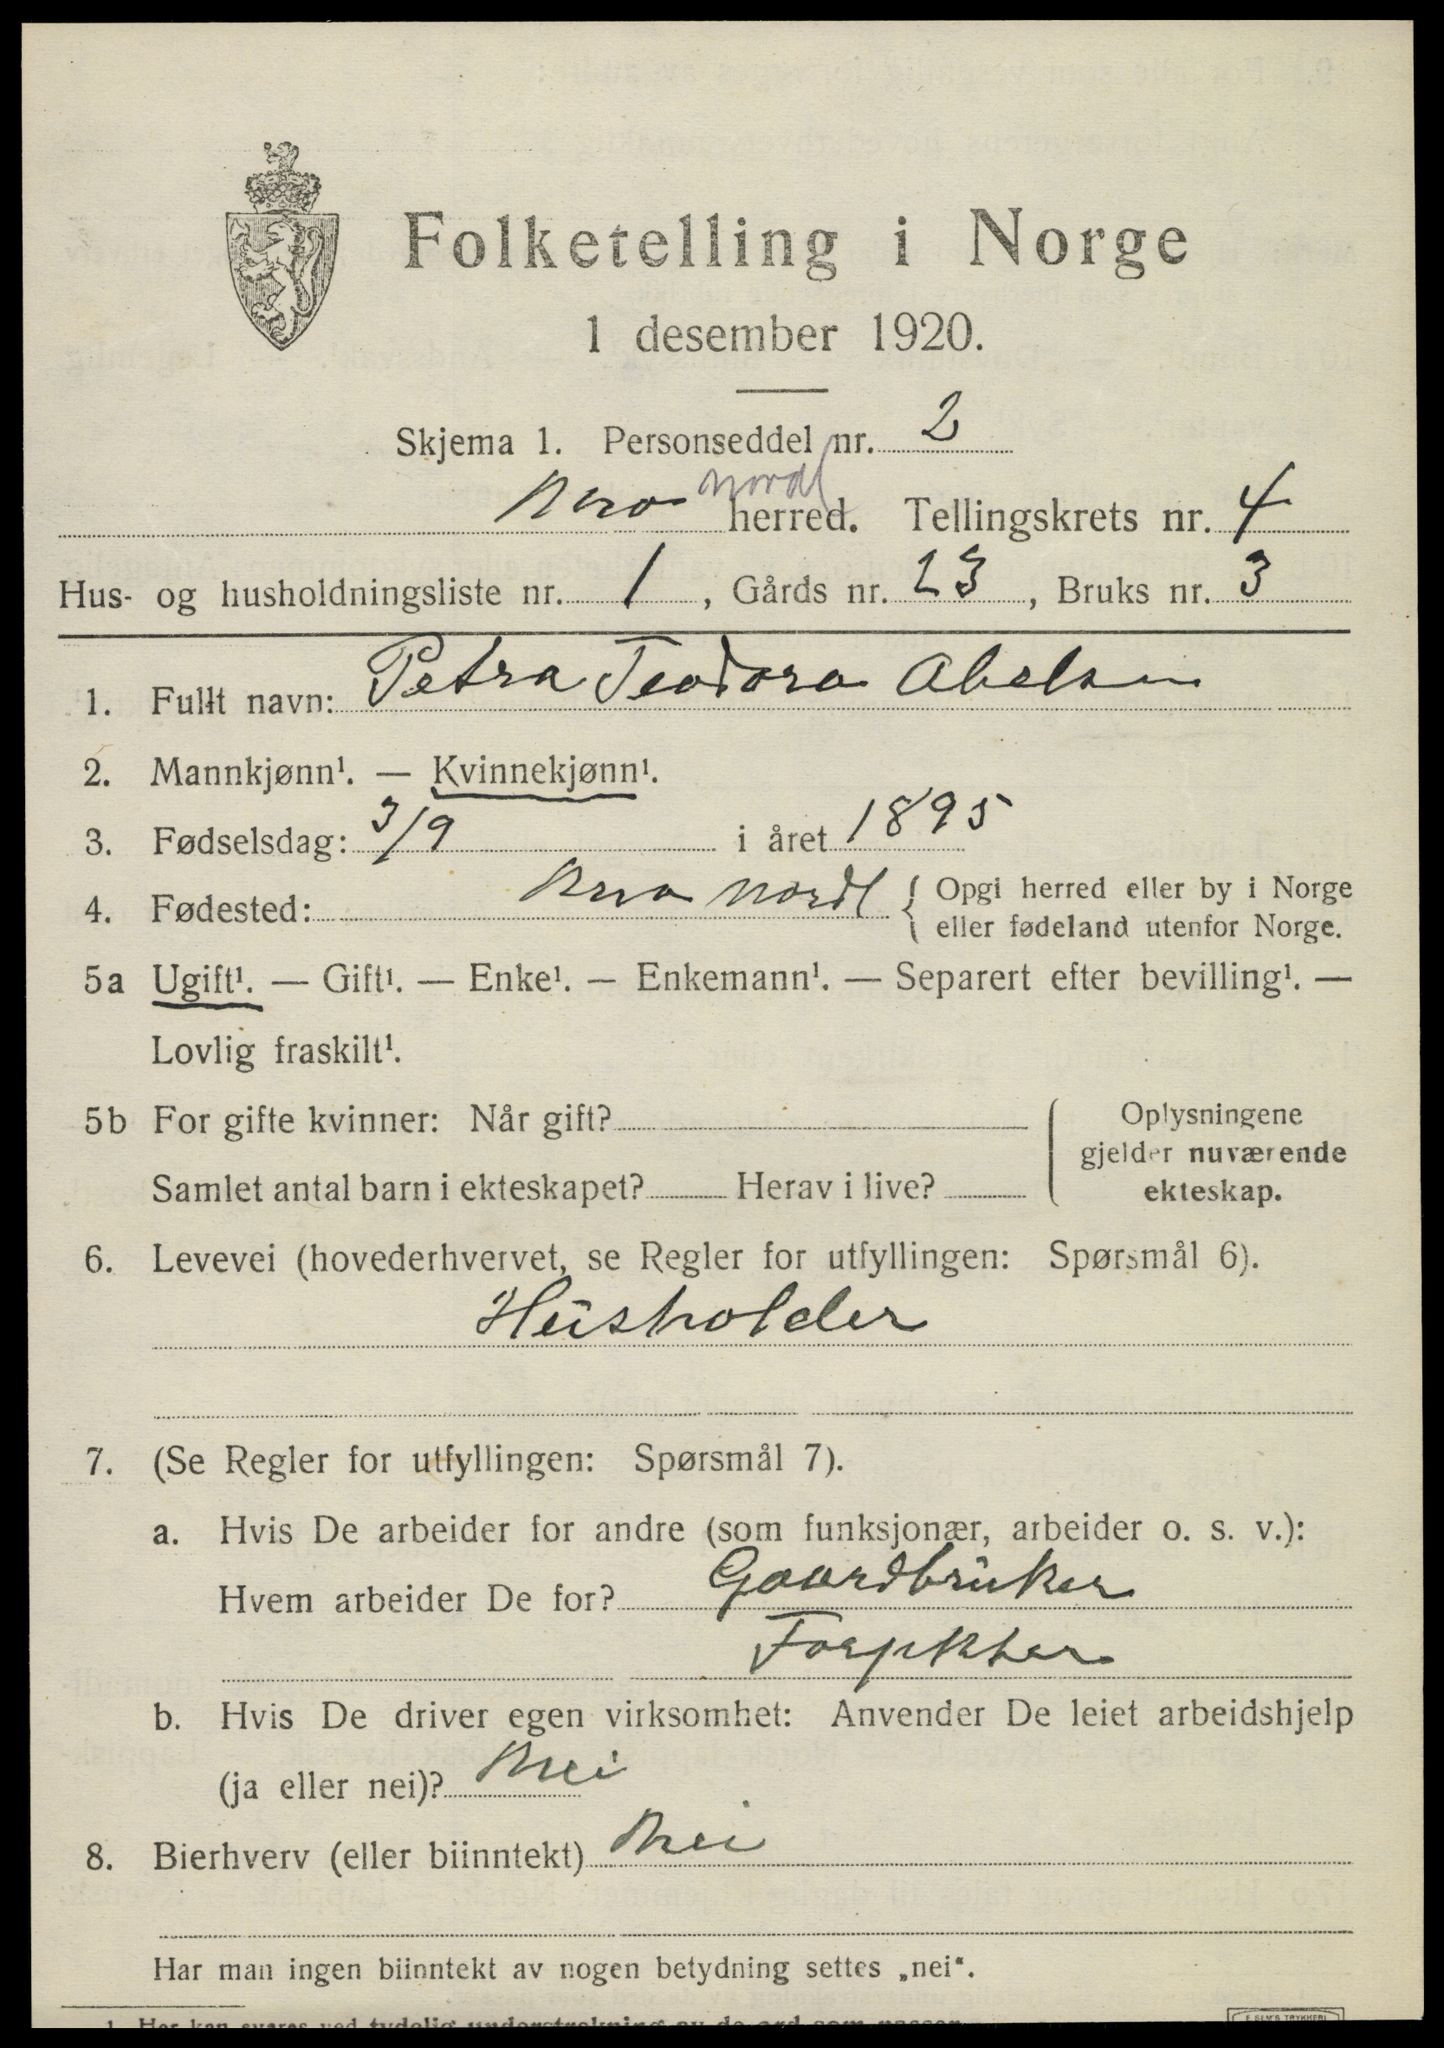 Folketelling i Norge
1 desember 1920.
Skjema 1. Personseddel nr. 2
Nordl
herred. Tellingskrets nr. 4
Hus- og husholdningsliste nr. 1, Gårds nr. 23, Bruks nr. 3
1. Fullt navn: Petra Teodora Abelsen
2. Mannkjønn¹. — Kvinnekjønn¹.
3. Fødselsdag: 3/9 i året 1895
4. Fødested: Nordl { Opgi herred eller by i Norge
eller fødeland utenfor Norge.
5a Ugift¹. — Gift¹. — Enke¹. — Enkemann¹. — Separert efter bevilling¹. —
Lovlig fraskilt¹.
5b For gifte kvinner: Når gift?
Samlet antal barn i ekteskapet? Herav i live?
Oplysningene
gjelder nuværende
ekteskap.
6. Levevei (hovederhvervet, se Regler for utfyllingen: Spørsmål 6).
Husholder
7. (Se Regler for utfyllingen: Spørsmål 7).
a. Hvis De arbeider for andre (som funksjonær, arbeider o. s. v.):
Hvem arbeider De for? Gaardbruker
b. Hvis De driver egen virksomhet: Anvender De leiet arbeidshjelp
(ja eller nei)? Nei
8. Bierhverv (eller biinntekt) Nei
Har man ingen biinntekt av nogen betydning settes „nei“.
1 Her kan svares ved tydelig understrekning av de ord som passer.